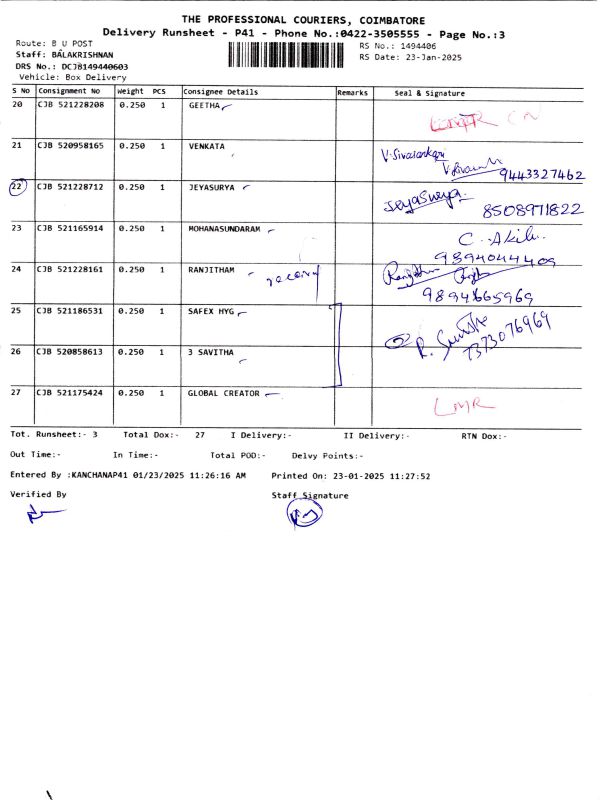 THE PROFESSIONAL COURIERS, COIMBATORE
Delivery Runsheet - P41 - Phone No.:0422-3505555 - Page No.:3
Route: B U POST
Staff: BALAKRISHNAN
DRS No.: DCJB149440603
Vehicle: Box Delivery
RS No.: 1494406
RS Date: 23-Jan-2025
S No Consignment No Weight PCS Consignee Details Remarks Seal & Signature
20 CJB 521228208 0.250 1 GEETHA
21 CJB 520958165 0.250 1 VENKATA V.Sivasankari
9443327462
22 CJB 521228712 0.250 1 JEYASURYA Jeyasurya
8508971822
23 CJB 521165914 0.250 1 MOHANASUNDARAM C. Akil
9894044409
24 CJB 521228161 0.250 1 RANJITHAM
9894665969
25 CJB 521186531 0.250 1 SAFEX HYG
7373076969
26 CJB 520858613 0.250 1 3 SAVITHA
27 CJB 521175424 0.250 1 GLOBAL CREATOR LMR
Tot. Runsheet:- 3 Total Dox:- 27 I Delivery:- II Delivery:- RTN Dox:-
Out Time:- In Time:- Total POD:- Delvy Points:-
Entered By :KANCHANAP41 01/23/2025 11:26:16 AM Printed On: 23-01-2025 11:27:52
Verified By Staff Signature